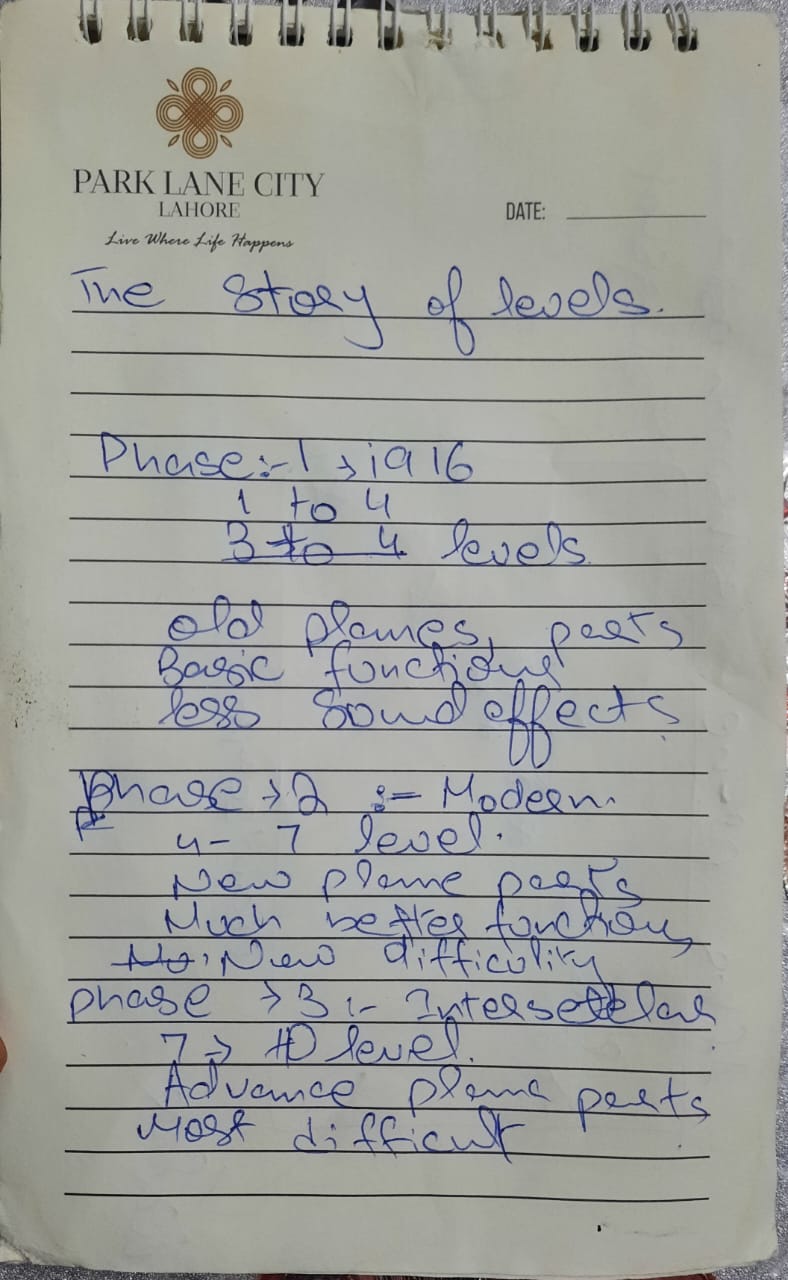 PARK LANE CITY
LAHORE
Live Where Life Happens
DATE:
The Story of levels.
Phase:-1 → 1916
1 to 4
3 to 4 levels
old planes, parts
Basic functions
less Sound effects
Phase → 2 :- Modern.
4- 7 level.
New plane parts
Much better function,
No. New difficulity
phase → 3 :- Intersetelar
7 → 10 level.
Advance plane parts
Most difficult